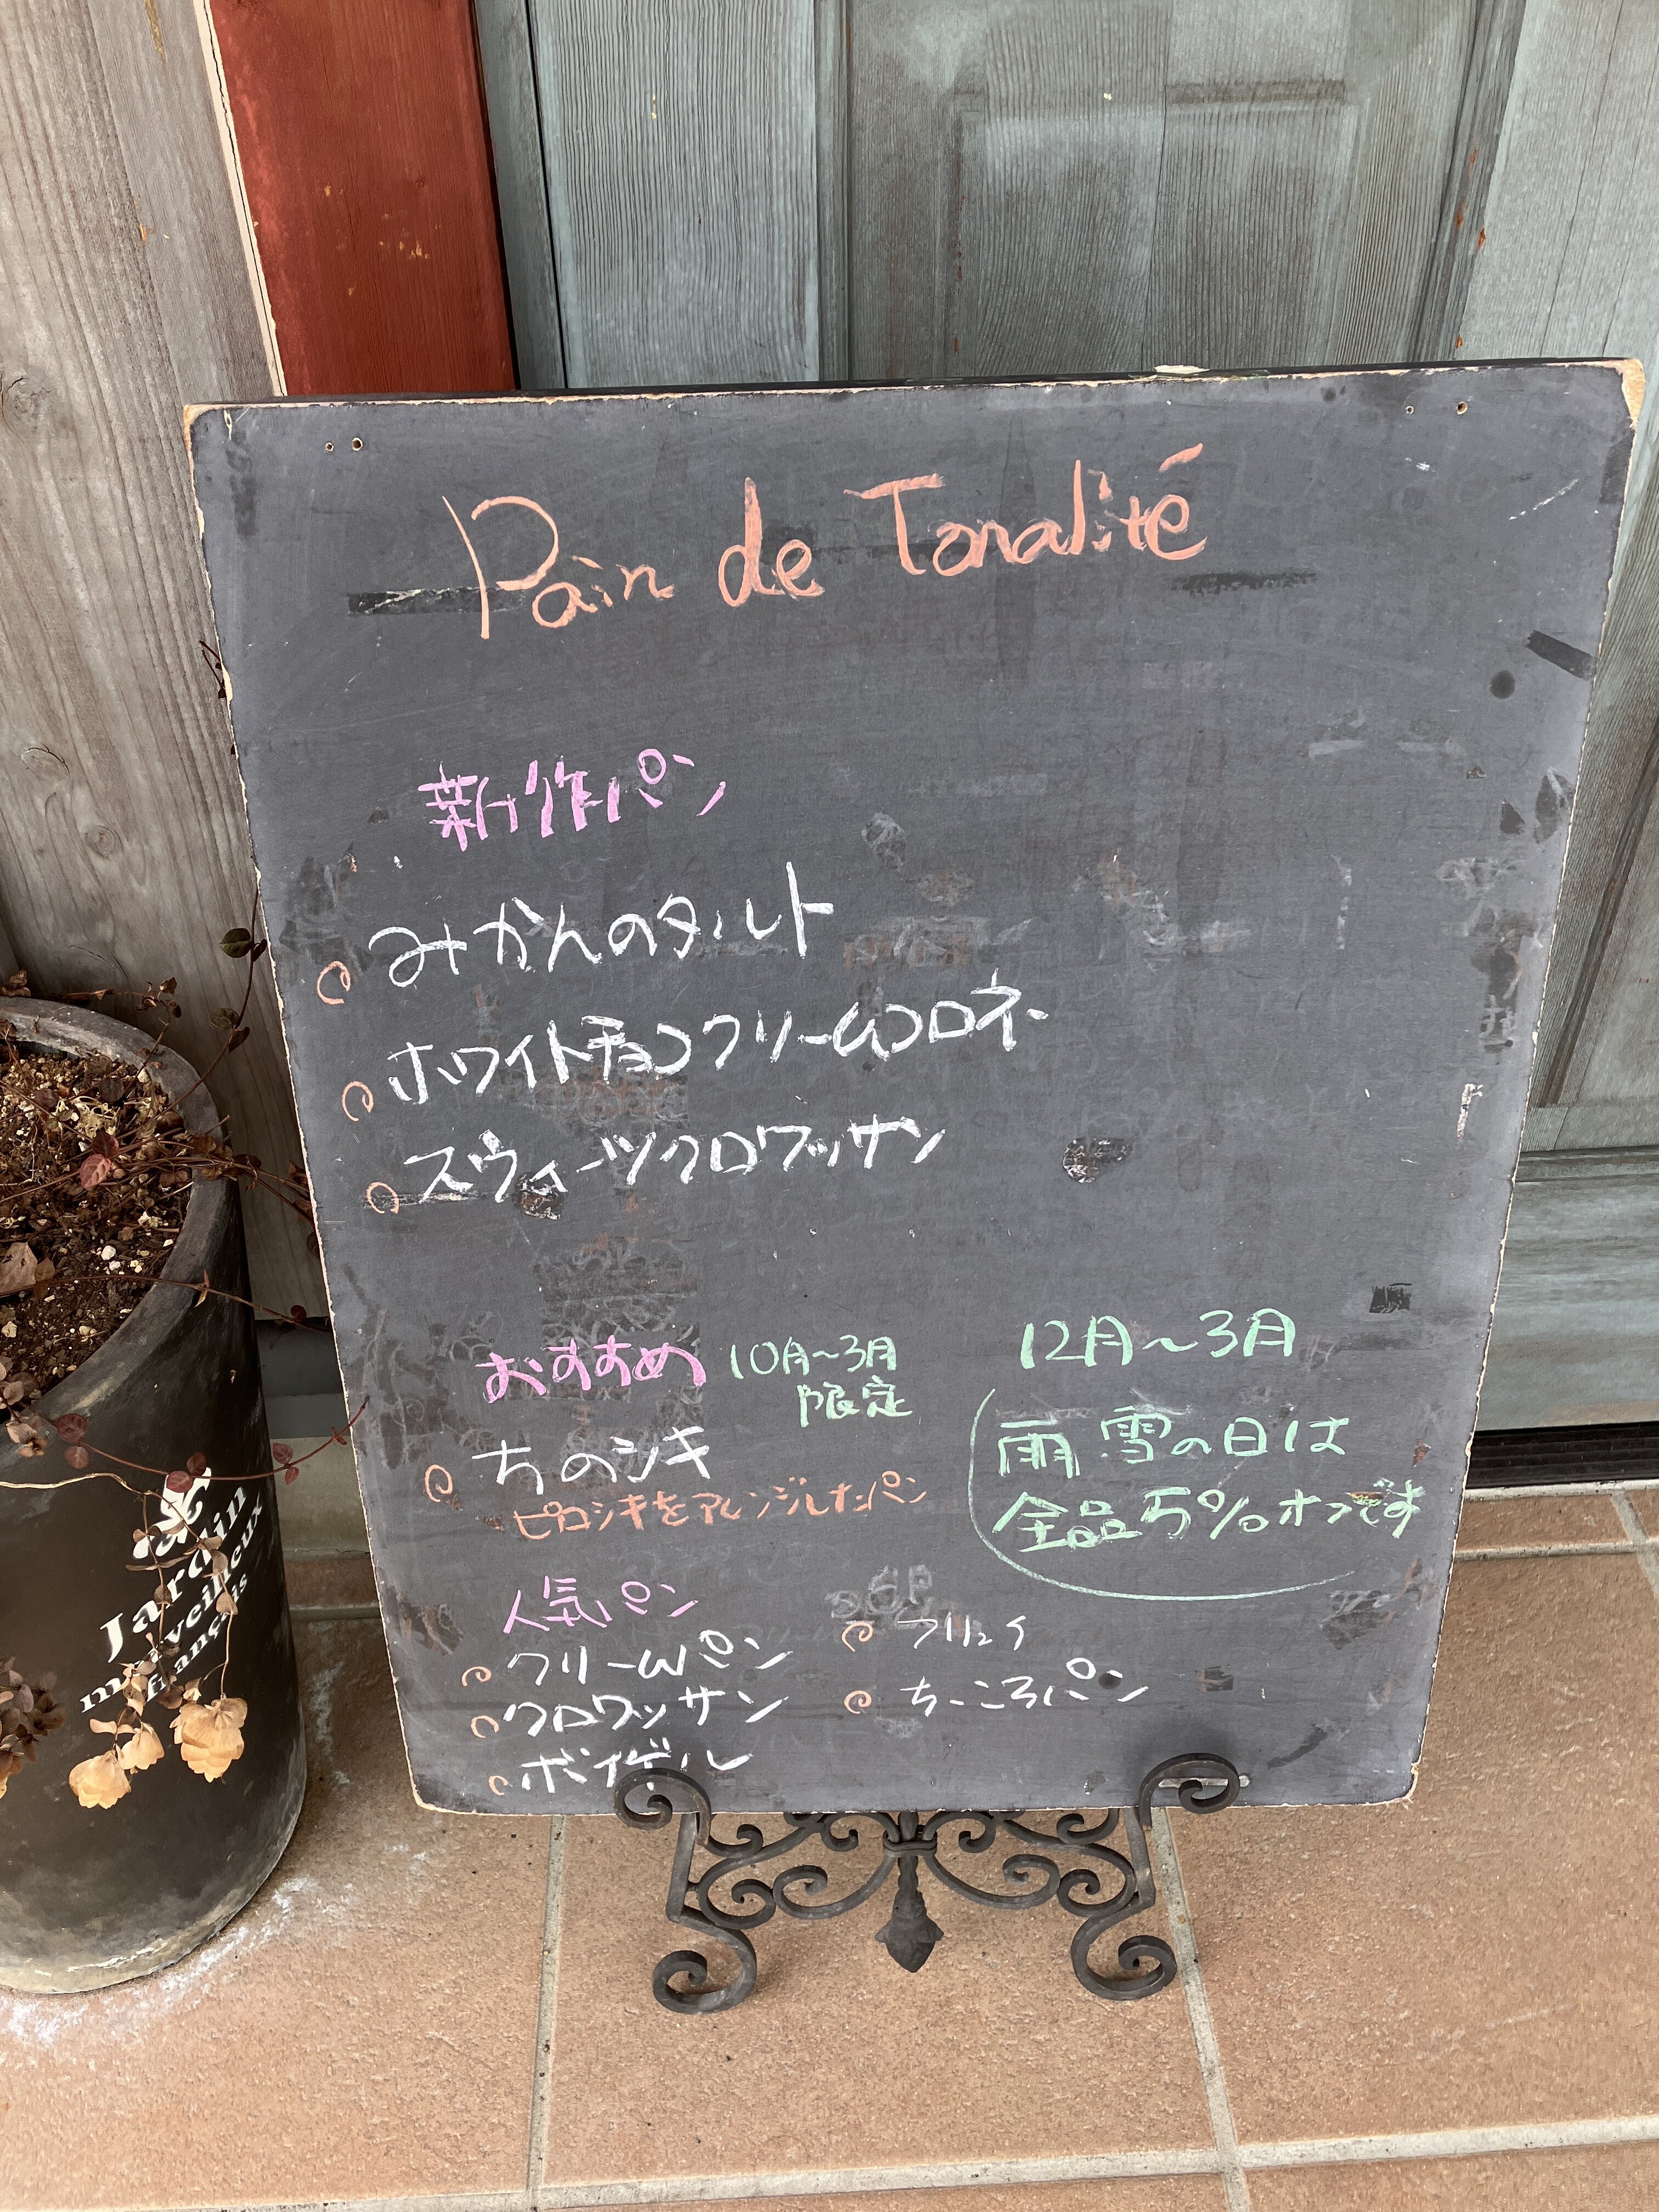 Pain de Tonalité
新作パン
みかんのタルト
ホワイトチョコクリームコロネ
スウィーツクロワッサン
おすすめ 10月～3月
限定
ちのシキ
ピロシキをアレンジしたパン
12月～3月
雨 雪の日は
全品5%オフです
人気パン
クリームパン
クロワッサン
ボイゲル
フリュイ
ちーころパン
Jardin
merveilleux
français